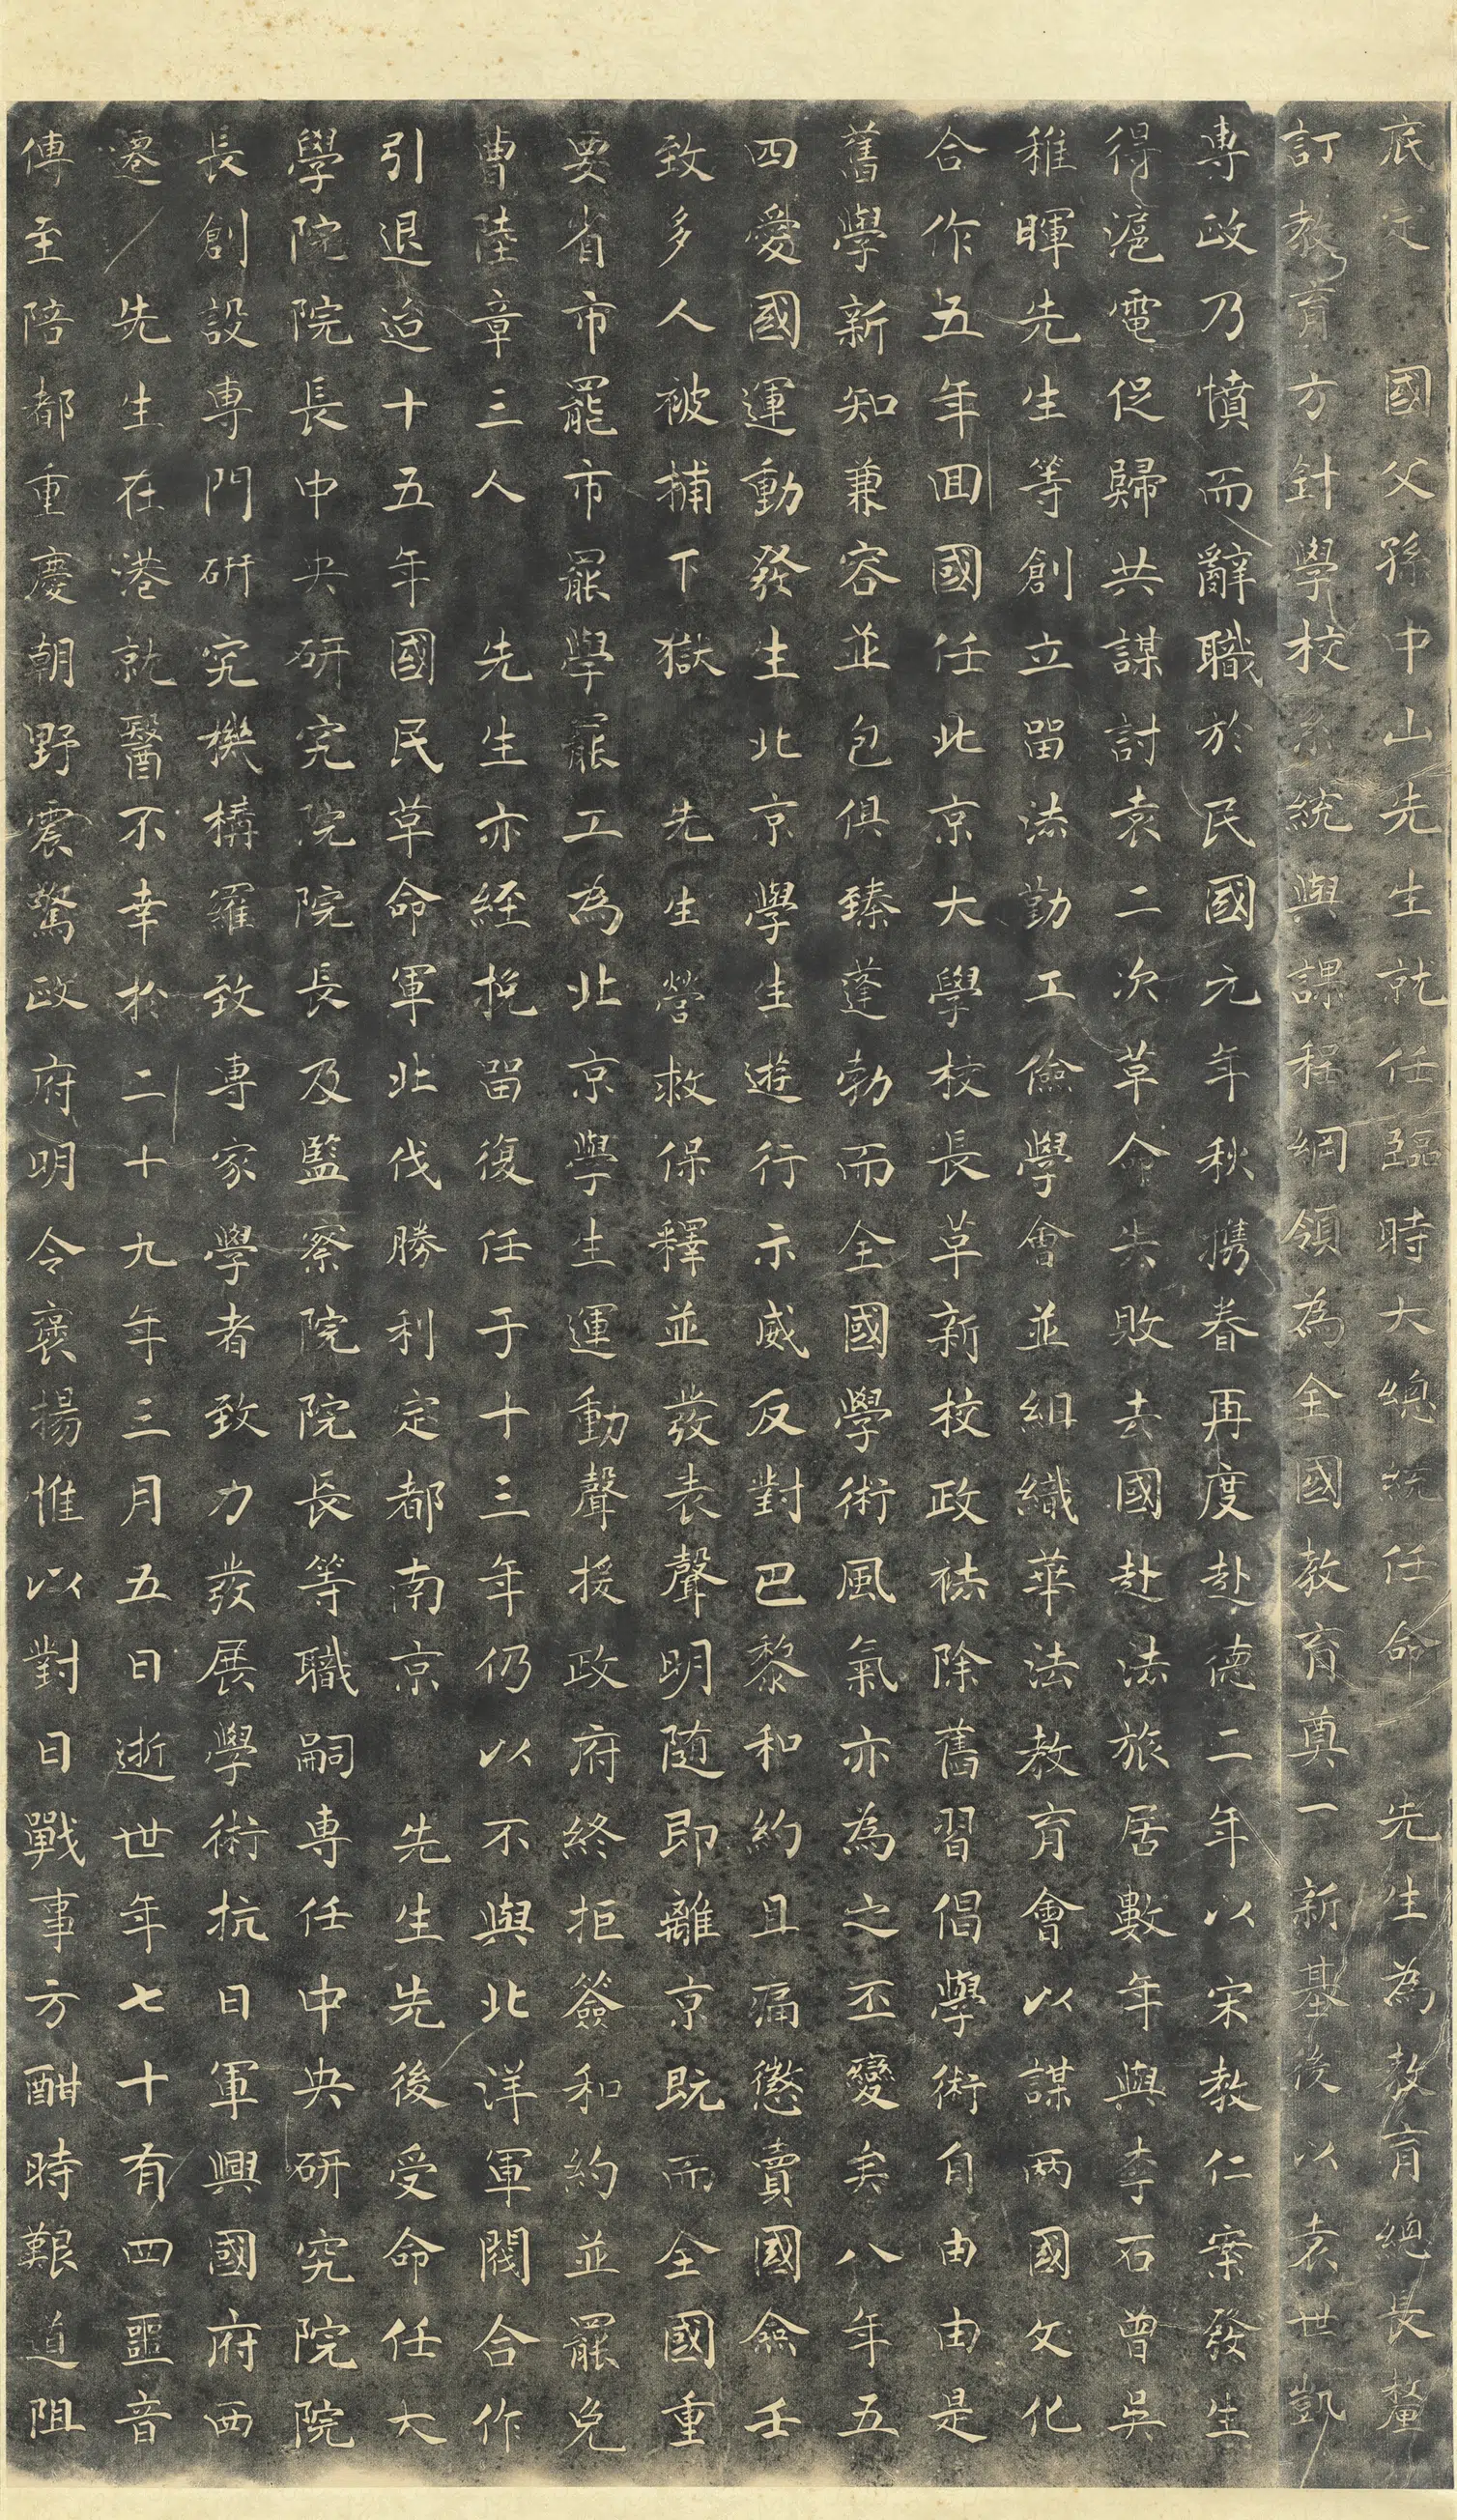 底定　國父孫中山先生就任臨時大總統任命　先生為教育總長釐
訂教育方針學校系統與課程綱領為全國教育奠一新基後以袁世凱
專政乃憤而辭職於民國元年秋携眷再度赴德二年以宋教仁案發生
得滬電促歸共謀討袁二次革命失敗去國赴法旅居數年與李石曾吳
稚暉先生等創立留法勤工儉學會並組織華法教育會以謀兩國文化
合作五年回國任北京大學校長革新校政祛除舊習倡學術自由由是
舊學新知兼容並包俱臻蓬勃而全國學術風氣亦為之丕變矣八年五
四愛國運動發生北京學生遊行示威反對巴黎和約且痛懲賣國僉壬
致多人被捕下獄　先生營救保釋並發表聲明隨即離京既而全國重
要省市罷市罷學罷工為北京學生運動聲援政府終拒簽和約並罷免
曹陸章三人　先生亦經挽留復任于十三年仍以不與北洋軍閥合作
引退迨十五年國民革命軍北伐勝利定都南京　先生先後受命任大
學院院長中央研究院院長及監察院院長等職嗣專任中央研究院院
長創設專門研究機構羅致專家學者致力發展學術抗日軍興國府西
遷　先生在港就醫不幸於二十九年三月五日逝世年七十有四噩音
傳至陪都重慶朝野震驚政府明令褒揚惟以對日戰事方酣時艱道阻